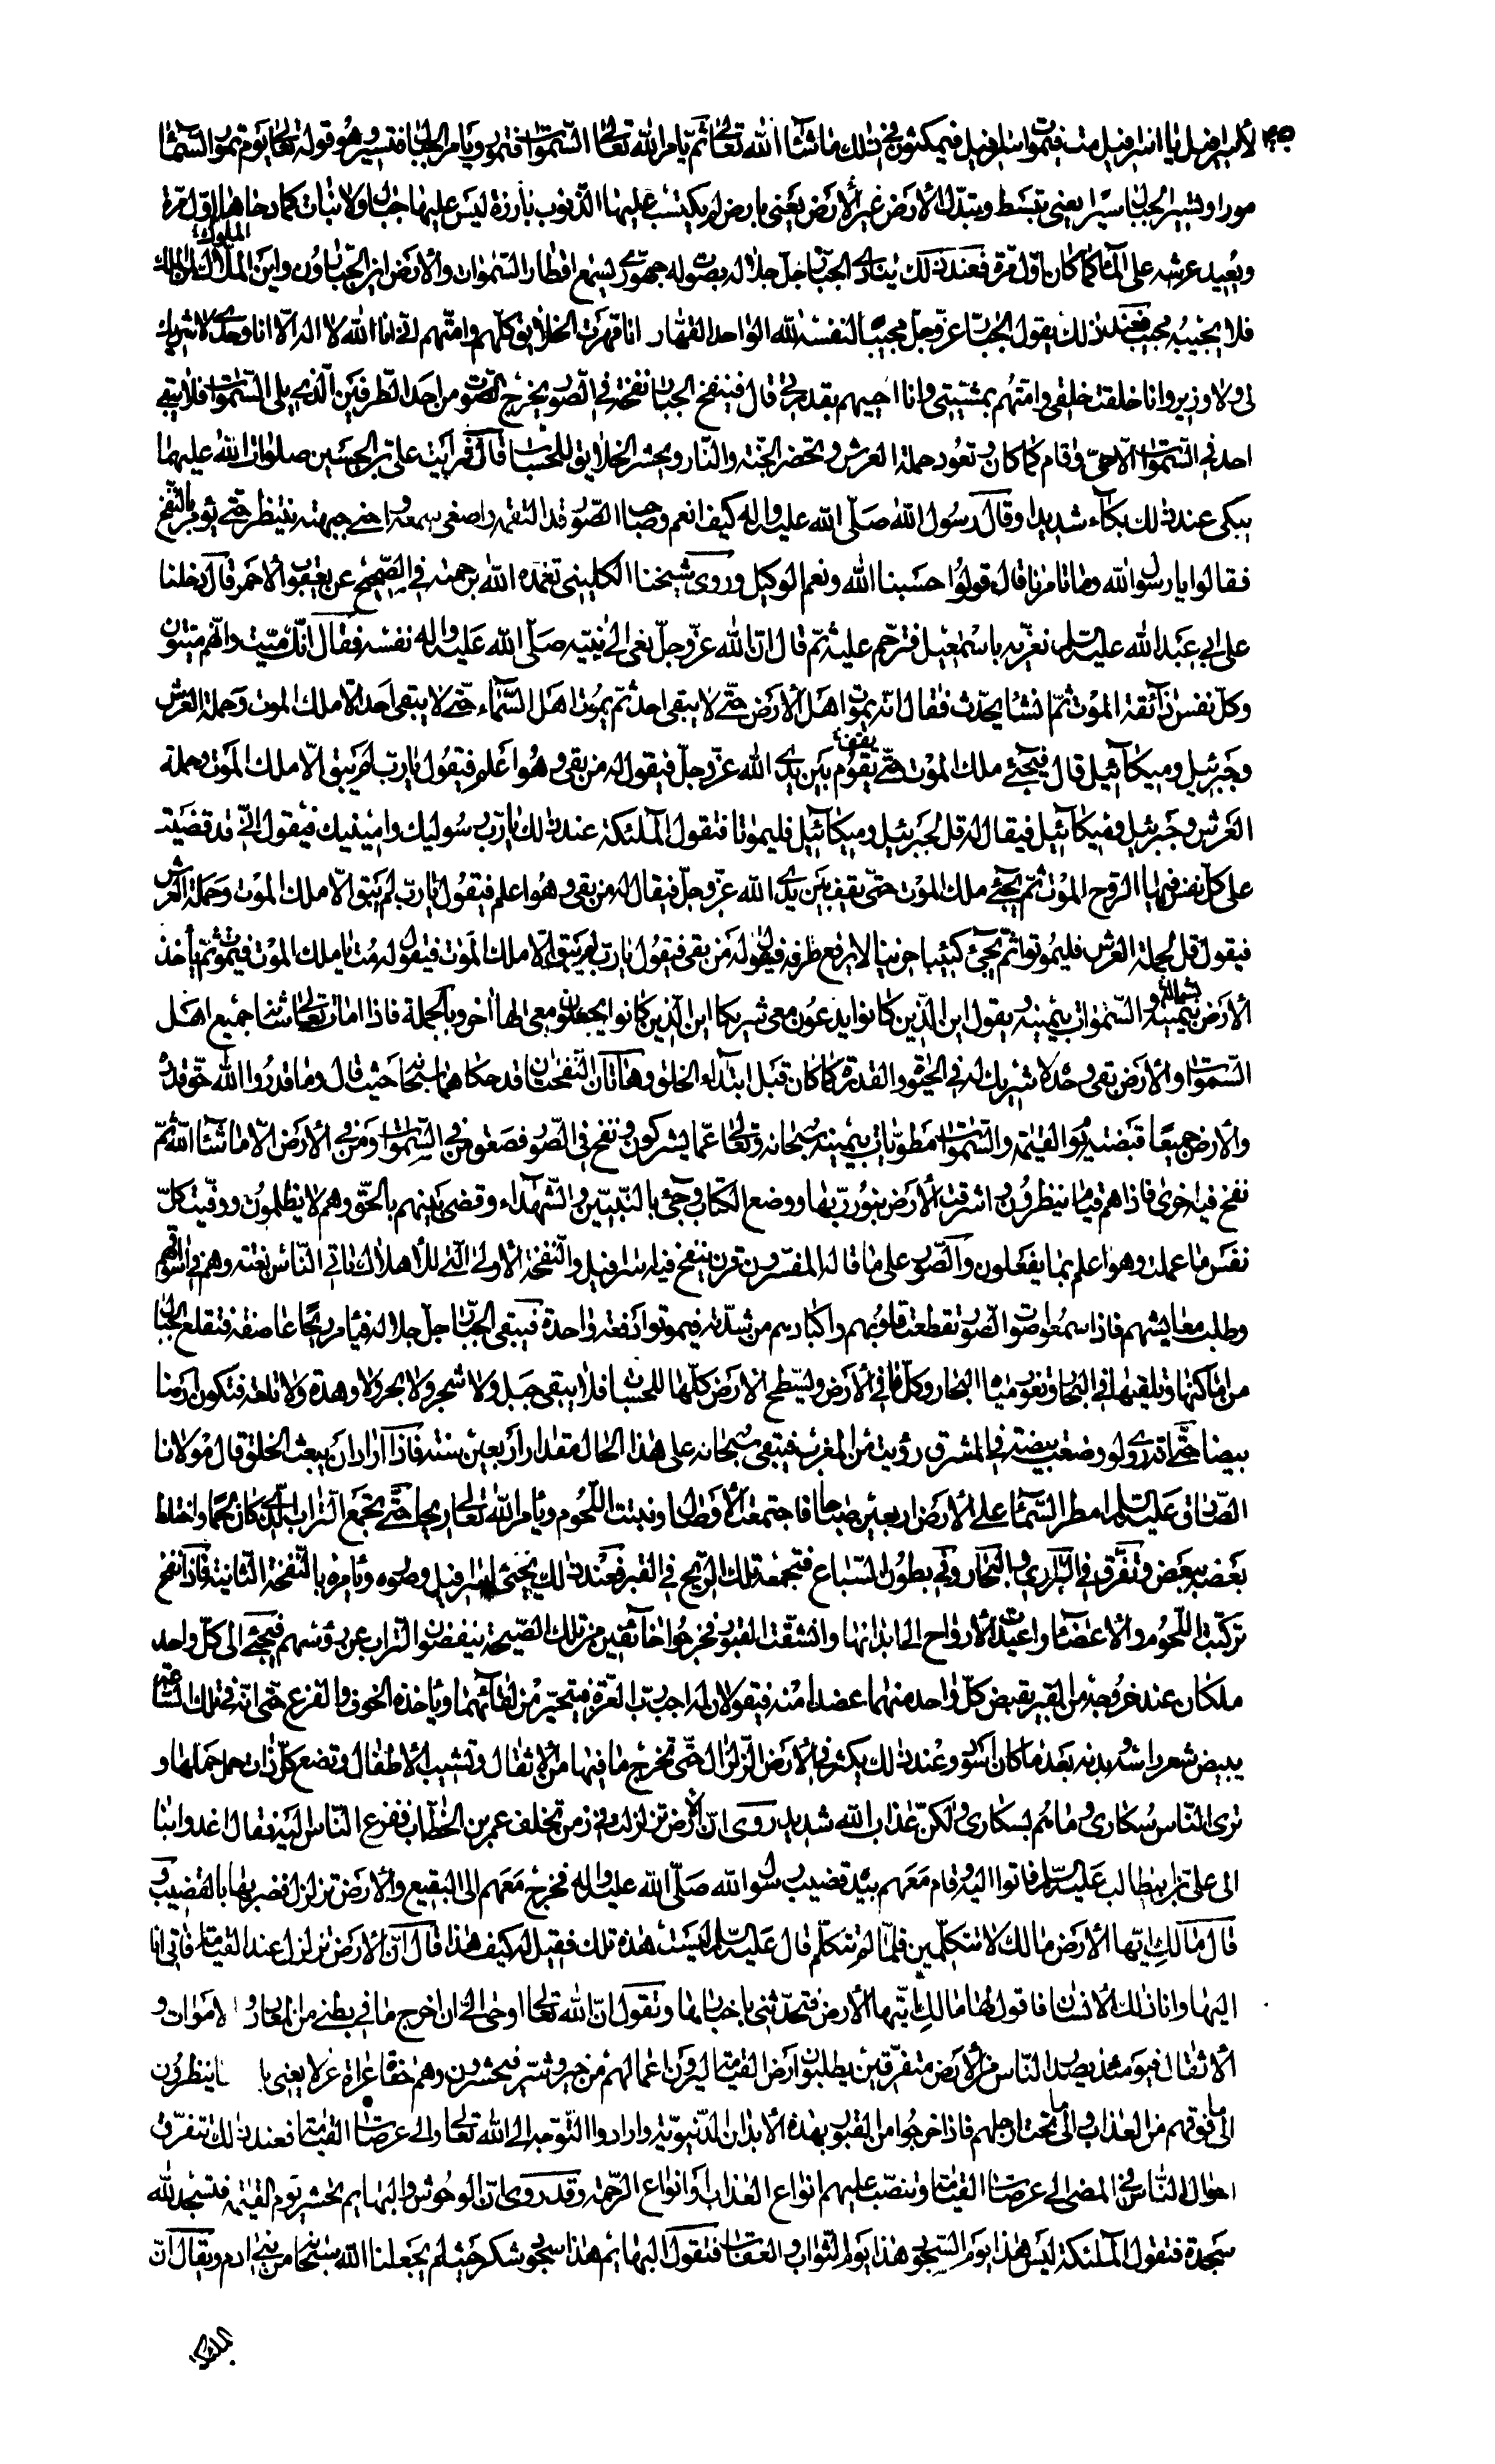 لأسرافيل يا اسرافيل مت فيموت اسرافيل فيمكثون في ذلك ما شآء الله تعالى ثم يامر الله تعالى السّموات فتمور ويامر الجبال فتسير وهو قوله تعالى يوم تمور السّمآء
مورا وتسير الجبال سيرا يعنى تبسط وتبدّل الأرض غير الأرض يعنى بارض لم يكتسب عليها الذنوب بارزة ليس عليها جبال ولا نبات كما دحاها اوّل مرّة
ويُعيد عرشه على المآء كما كان اوّل مرّة فعند ذلك ينادى الجبّار جلّ جلاله بصوت له جهورى يسمع اقطار السّموات والأرض اين الجبّارون واين الملوك لمن الملك
فلا يجيبه مجيب فعند ذلك يقول الجبّار عزّ وجلّ مجيبًا لنفسه لله الواحد القهّار انا قهرت الخلايق كلّهم وامتّهم انّى انا الله لا اله الّا انا وحدى لا شريك
لى ولا وزير وانا خلقت خلقى وامتّهم بمشيّتى وانا احييهم بقدرتى قال فينفخ الجبّار نفخة في الصّور يخرج الصّوت من احد الطّرفين الّذى يلى السّموات فلا يبقى
احد في السّموات الّا حىّ وقام كما كان وتعود حملة العرش وتحضر الجنّة والنّار ويحشر الخلايق للحساب قال فرايت علىّ بن الحسين صلوات الله عليهما
يبكى عند ذلك بكآء شديدا وقال رسول الله صلّى الله عليه واله كيف انعم وصاحب الصّور قد التقمه واصغى سمعه واحنى جبهته ينتظر حتّى يؤمر بالنّفخ
فقالوا يا رسول الله وما تامرنا قال قولوا حسبنا الله ونعم الوكيل وروى شيخنا الكلينى تغمّده الله برحمته في الصّحيح عن يعقوب الاحمر قال دخلنا
على ابى عبد الله عليه السّلم نعزّيه باسمعيل فترحّم عليه ثمّ قال انّ الله عزّ وجلّ نعى الى نبيّه صلّى الله عليه واله نفسه فقال انّك ميّت وانّهم ميّتون
وكلّ نفس ذآئقة الموت ثمّ انشأ يحدّث فقال انّه يموت اهل الأرض حتّى لا يبقى احد ثمّ يموت اهل السّمآء حتّى لا يبقى احد الّا ملك الموت وحملة العرش
وجبرئيل وميكآئيل قال فيجئ ملك الموت حتّى يقوم بين يدى الله عزّ وجلّ فيقول له من بقى وهو اعلم فيقول يا ربّ لم يبق الّا ملك الموت وحملة
العرش وجبرئيل وميكآئيل فيقال له قل لجبرئيل وميكآئيل فليموتا فتقول الملئكة عند ذلك يا ربّ رسوليك وامينيك فيقول انّى قد قضيت
على كلّ نفس فيها الرّوح الموت ثمّ يجئ ملك الموت حتّى يقف بين يدى الله عزّ وجلّ فيقال له من بقى وهو اعلم فيقول يا ربّ لم يبق الّا ملك الموت وحملة العرش
فيقول قل لحملة العرش فليموتوا ثمّ يجئ كئيبا حزينا لا يرفع طرفه فيقول له من بقى فيقول يا ربّ لم يبق الّا ملك الموت فيقول له مُت يا ملك الموت فيموت ثمّ ياخذ
الأرض بيمينه بشماله والسّموات بيمينه ويقول اين الّذين كانوا يدعون معى شريكا اين الّذين كانوا يجعلون معى الها آخر وبالجملة فاذا امات تعالى شانه جميع اهل
السّموات والأرض بقى وحده لا شريك له في الحيوة والقدرة كما كان قبل ابتدآء الخلق وهاتان النّفختان قد حكاهما سبحانه حيث قال وما قدروا الله حقّ قدره
والأرض جميعا قبضته يوم القيمة والسّموات مطويّات بيمينه سبحانه وتعالى عمّا يشركون ونفخ في الصّور فصعق من في السّموات ومن في الأرض الّا ما شآء الله ثمّ
نفخ فيه اخرى فاذا هم قيام ينظرون واشرقت الأرض بنور ربّها ووضع الكتاب وجئ بالنّبيّين والشّهدآء وقضى بينهم بالحقّ وهم لا يظلمون ووفّيت كلّ
نفس ما عملت وهو اعلم بما يفعلون والصّور على ما قاله المفسّرون قرن ينفخ فيه اسرافيل والنّفخة الأولى الّتى للأهلاك تاتى النّاس بغتة وهم في اسواقهم
وطلب معايشهم فاذا سمعوا صوت الصّور تقطّعت قلوبهم واكبادهم من شدّته فيموتوا دفعة واحدة فيبقى الجبّار جلّ جلاله فيأمر ريحًا عاصفة فتقلع الجبال
من اماكنها وتلقيها في البحار وتغور مياه البحار وكلّ ما في الأرض وتسطّح الأرض كلّها للحساب فلا يبقى جبل ولا شجر ولا بحر ولا وهدة ولا تلعة فتكون ارضا
بيضا حتّى انّه روى لو وضعت بيضة في المشرق رؤيت من المغرب فيبقى سبحانه على هذا الحال مقدار أربعين سنة فاذا اراد أن يبعث الخلق قال مولانا
الصّادق عليه السّلم امطر السّمآء على الأرض اربعين صباحا فاجتمعت الأوصال ونبتت اللّحوم ويامر الله تعالى ريحا حتّى تجمع التراب الّذى كان لحما واختلط
بعضه ببعض وتفرّق في البرارى والبحار وفي بطون السّباع فتجمعه تلك الرّيح في القبر فعند ذلك يجئ اسرافيل وصوره ويأمره بالنّفخة الثانية فاذا نفخ
تركّبت اللّحوم والاعضآء واعيدت الأرواح الى ابدانها وانشقّت القبور فخرجوا خآئفين من تلك الصّيحة ينفضون التّراب عن رؤسهم فيجئ الى كلّ واحد
ملكان عند خروجه من القبر يقبض كلّ واحد منهما عضدا منه فيقولان له اجب ربّ العزّة فيتحيّر من لقآئهما وياخذه الخوف والفزع حتّى انّه في تلك السّاعة
يبيض شعر راسه وبدنه بعد ما كان اسود وعند ذلك يكثر في الأرض الزلزال حتّى تخرج ما فيها من الاثقال وتشيب الأطفال وتضع كلّ ذات حمل حملها و
ترى النّاس سُكارى وما هُم بسكارى ولكنّ عذاب الله شديد روى انّ الأرض تزلزلت في زمن تخلّف عمر بن الخطّاب ففزع النّاس اليه فقال اغدوا بنا
الى علىّ بن ابيطالب عليه السّلم فاتوا اليه وقام معهم بيده قضيب رسول الله صلّى الله عليه واله فخرج معهم الى البقيع والأرض تزلزل فضربها بالقضيب و
قال مالك ايّتها الأرض مالك لا تتكلّمين فلمّا لم تتكلّم قال عليه السّلم ليست هذه تلك فقيل له كيف هذا قال انّ الأرض تزلزل عند القيامة فآتى انا
اليها وانا ذلك الأنسان فاقول لها مالك ايّتها الأرض فتحدّثنى باخبارها وتقول انّ الله تعالى اوحى الىّ ان اخرج ما في بطنى من المعادن الاموات و
الأثقال فيومئذ يصدر النّاس من الأرض متفرّقين يطلبون ارض القيامة ليرون اعمالهم من خير وشرّ فيحشرون وهم حفاة عراة غرلا يعنى ينظرون
الى ما فوقهم من العذاب والى ما تحت ارجلهم فاذا خرجوا من القبور بهذه الأبدان الدّنيويّة وارادوا التّوجّه الى الله تعالى والى عرصات القيامة فعند ذلك تتفرّق
احوال النّاس في المضى الى عرصات القيامة وتنصبّ عليهم انواع العذاب وانواع الرّحمة وقد روى انّ الوحوش والبهايم يحشر يوم القيمة فتسجد لله
سجدة فتقول الملئكة ليس هذا يوم السّجود هذا يوم الثّواب والعقاب فتقول البهايم هذا سجود شكر حيث لم يجعلنا الله سبحانه من بنى ادم ويقال انّ